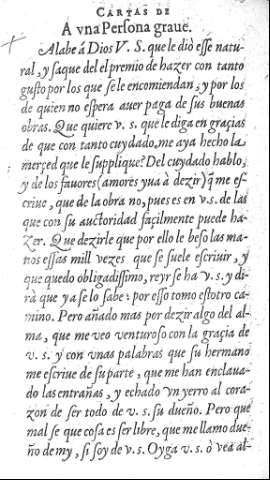 CARTAS DE
A vna Persona graue.
Alabe á Dios V. S. que le dió esse natu-
ral, y saque del el premio de hazer con tanto
gusto por los que se le encomiendan, y por los
de quien no espera auer paga de sus buenas
obras. Que quiere v. s. que le diga en graçias
de que con tanto cuydado, me aya hecho la
merçed que le supplique? Del cuydado hablo,
y de los fauores (amores yua à dezir) q̃ me es-
criue, que de la obra no, pues es en v.s. de las
que con su auctoridad façilmente puede ha-
zer. Que dezirle que por ello le beso las ma-
nos essas mill vezes que se suele escriuir, y
que quedo obligadissimo, reyrse ha v. s. y di-
rà que ya se lo sabe: por esso tomo estotro ca-
mino. Pero añado mas por dezir algo del al-
ma, que me veo venturoso con la graçia de
v. s. y con vnas palabras que su hermano
me escriue de su parte, que me han enclaua-
do las entrañas, y echado vn yerro al cora-
zon de ser todo de v. s. su dueño. Pero que
mal se que cosa es ser libre, que me llamo due-
ño de my, si soy de v. s. Oyga v. s. ò vea al-